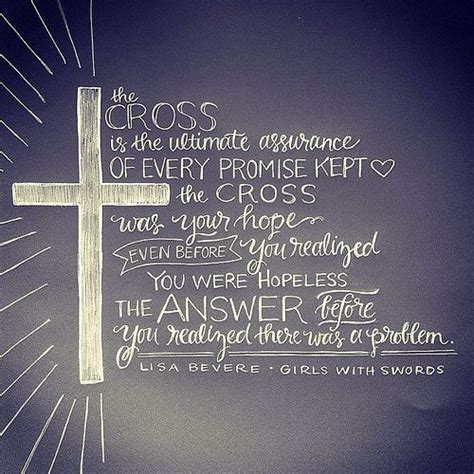 the
CROSS
is the ultimate assurance
OF EVERY PROMISE KEPT♡
the CROSS
was your hope
EVEN BEFORE you realized
YOU WERE HOPELESS
THE ANSWER before
you realized there was a problem.
LISA BEVERE • GIRLS WITH SWORDS